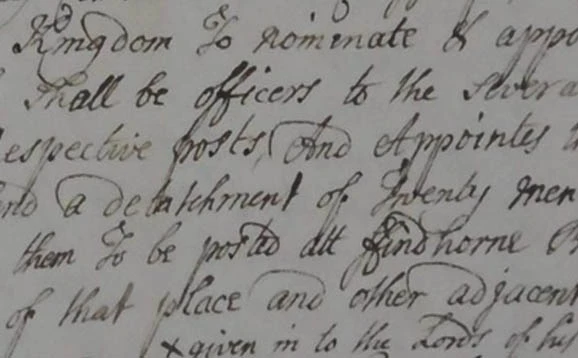 Kingdom To nominate & appo
shall be officers to the severa
espective posts, And Appointes t
nd a detatchment of Twenty men
them To be posted att ffindhorne
of that place and other adjacent
x given in to the Lords of his